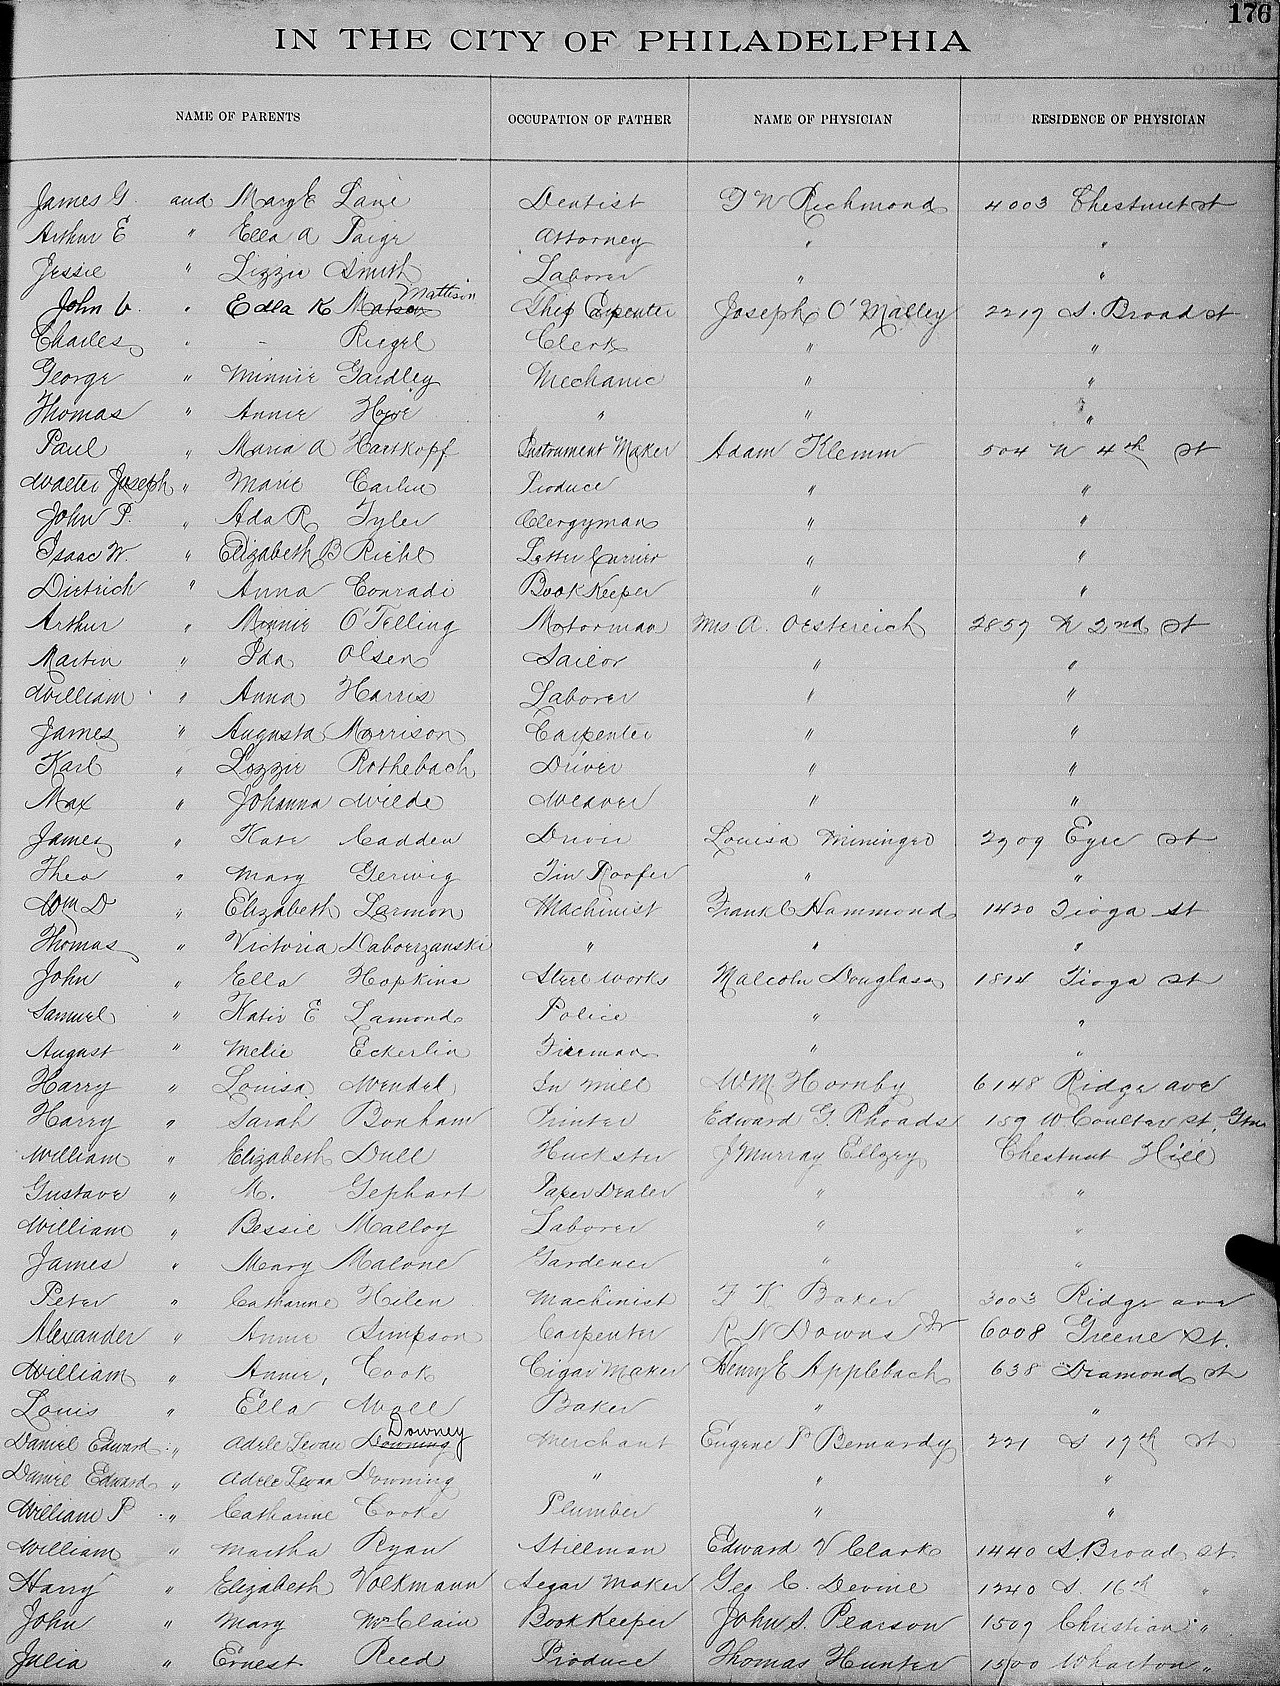 176
IN THE CITY OF PHILADELPHIA
NAME OF PARENTS OCCUPATION OF FATHER NAME OF PHYSICIAN RESIDENCE OF PHYSICIAN
James G. and Mary E Lane Dentist T W Richmond 4003 Chestnut st
Arthur E " Ella A Paige Attorney " "
Jessie " Lizzie Smith Laborer " "
Mattison
John V. " Edla K Matson Ship Carpenter Joseph O'Malley 2217 S. Broad st
Charles " - Riegel Clerk " "
George " Minnie Yardley Mechanic " "
Thomas " Annie Howe " " "
Paul " Maria A Hartkopf Instrument Maker Adam Klemm 504 N 4th St
Walter Joseph " Marie Carlin Produce " "
John P. " Ada R Tyler Clergyman " "
Isaac W. " Elizabeth B Riehl Letter Carrier " "
Dietrich " Anna Conradi Book Keeper " "
Arthur " Minnie O'Telling Motorman Mrs A. Oestereich 2857 N 2nd St
Martin " Ida Olsen Sailor " "
William " Anna Harris Laborer " "
James " Augusta Morrison Carpenter " "
Karl " Lizzie Rothebach Driver " "
Max " Johanna Wilde Weaver " "
James " Kate Cadden Driver Louisa Mininger 2909 Eyre St
Theo " Mary Gerwig Tin Roofer " "
Wm D " Elizabeth Larmon Machinist Frank C Hammond 1420 Tioga st
Thomas " Victoria Daboerzanski " " "
John " Ella Hopkins Steel Works Malcolm Douglass 1814 Tioga St
Samuel " Katie E Lamond Police " "
August " Melie Eckerlin Fireman " "
Harry " Louisa Wendel In Mill WM Hornby 6148 Ridge ave
Harry " Sarah Bonham Printer Edward G. Rhoads 159 W Coulter st, Gtn
William " Elizabeth Dull Huckster J Murray Ellzey Chestnut Hill
Gustave " M. Gephart Paper Dealer " "
William " Bessie Malloy Laborer " "
James " Mary Malone Gardener " "
Peter " Catharine Hilen Machinist F K Baker 3003 Ridge ave
Alexander " Annie Simpson Carpenter R N Downs Jr 6008 Greene St.
William " Annie, Cook Cigar Maker Henry E Applebach 638 Diamond st
Louis " Ella Wall Baker " "
Downey
Daniel Edward " Adele Levan Downing Merchant Eugene P Bernardy 221 S 17th St
Daniel Edward " Adele Levan Downing " " "
William P " Catharine Cooke Plumber " "
William " Martha Ryan Stillman Edward V Clark 1440 S. Broad St.
Harry " Elizabeth Volkmann Segar Maker Geo C. Devine 1240 S. 16th "
John " Mary McClain Book Keeper John S. Pearson 1507 Christian "
Julia " Ernest Reed Produce Thomas Hunter 1500 Wharton "